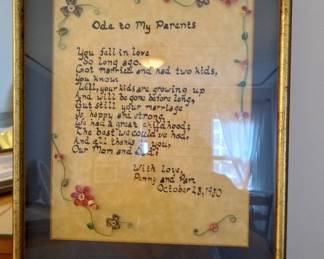 Ode to My Parents
You fell in love
So long ago.
Got married and had two kids,
You know.
Well, your kids are growing up
And will be gone before long,
But still your marriage
Is happy and strong.
We had a great childhood;
The best we could've had,
And all thanks to you,
Our Mom and Dad!
With love,
and Pam
October 28, 1980